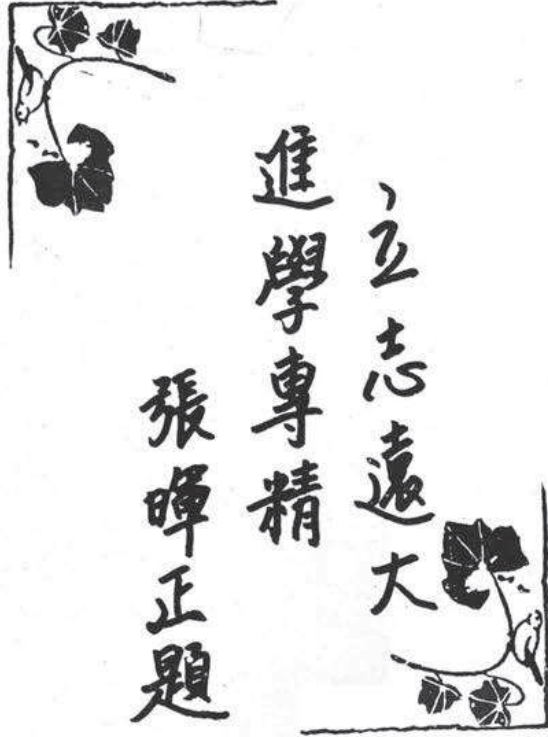 立志遠大
進學專精
張暉正題